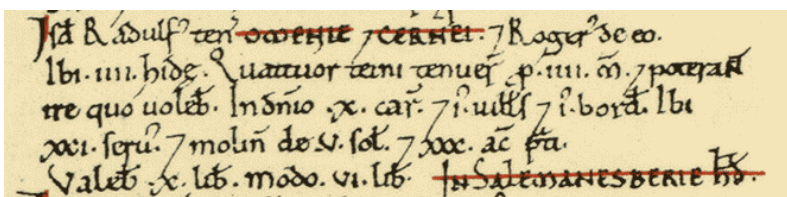 Isd̄ Radulf' ten' OWENIE ⁊ CERNEI. ⁊ Roger' de eo.
Ibi .IIII. hidę. Quattuor teini tenuer̄ p̄ .IIII. m̄. ⁊ poteran̄
ire quo uoleb̄. In dn̄io .x. car̄. ⁊ i. uill's ⁊ i. bord̄. Ibi
xxi. seru'. ⁊ molin̄ de .v. sol̄. ⁊ xxx. ac̄ p̄ti.
Valeb̄ .x. lib̄. modo .vi. lib̄. IN SALEMANESBERIE HD̄.